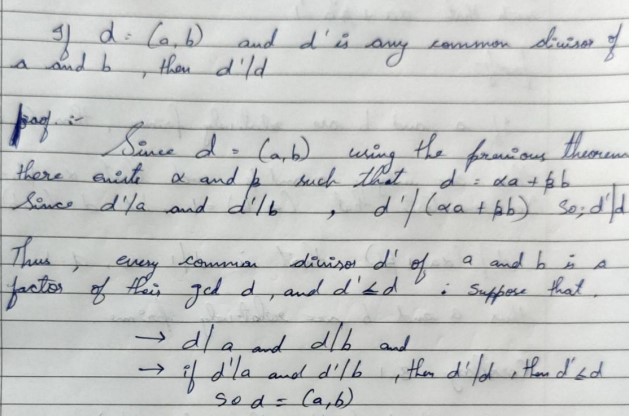 If d = (a, b) and d' is any common divisor of
a and b, then d'/d
proof :-
Since d = (a,b) using the previous theorem
there exists α and β such that d = αa + βb
Since d'/a and d'/b , d'/(αa + βb) So; d'/d
Thus, every common divisor d' of a and b is a
factor of their gcd d, and d' ≤ d ; suppose that.
→ d/a and d/b and
→ if d'/a and d'/b , then d'/d , then d' ≤ d
So d = (a,b)